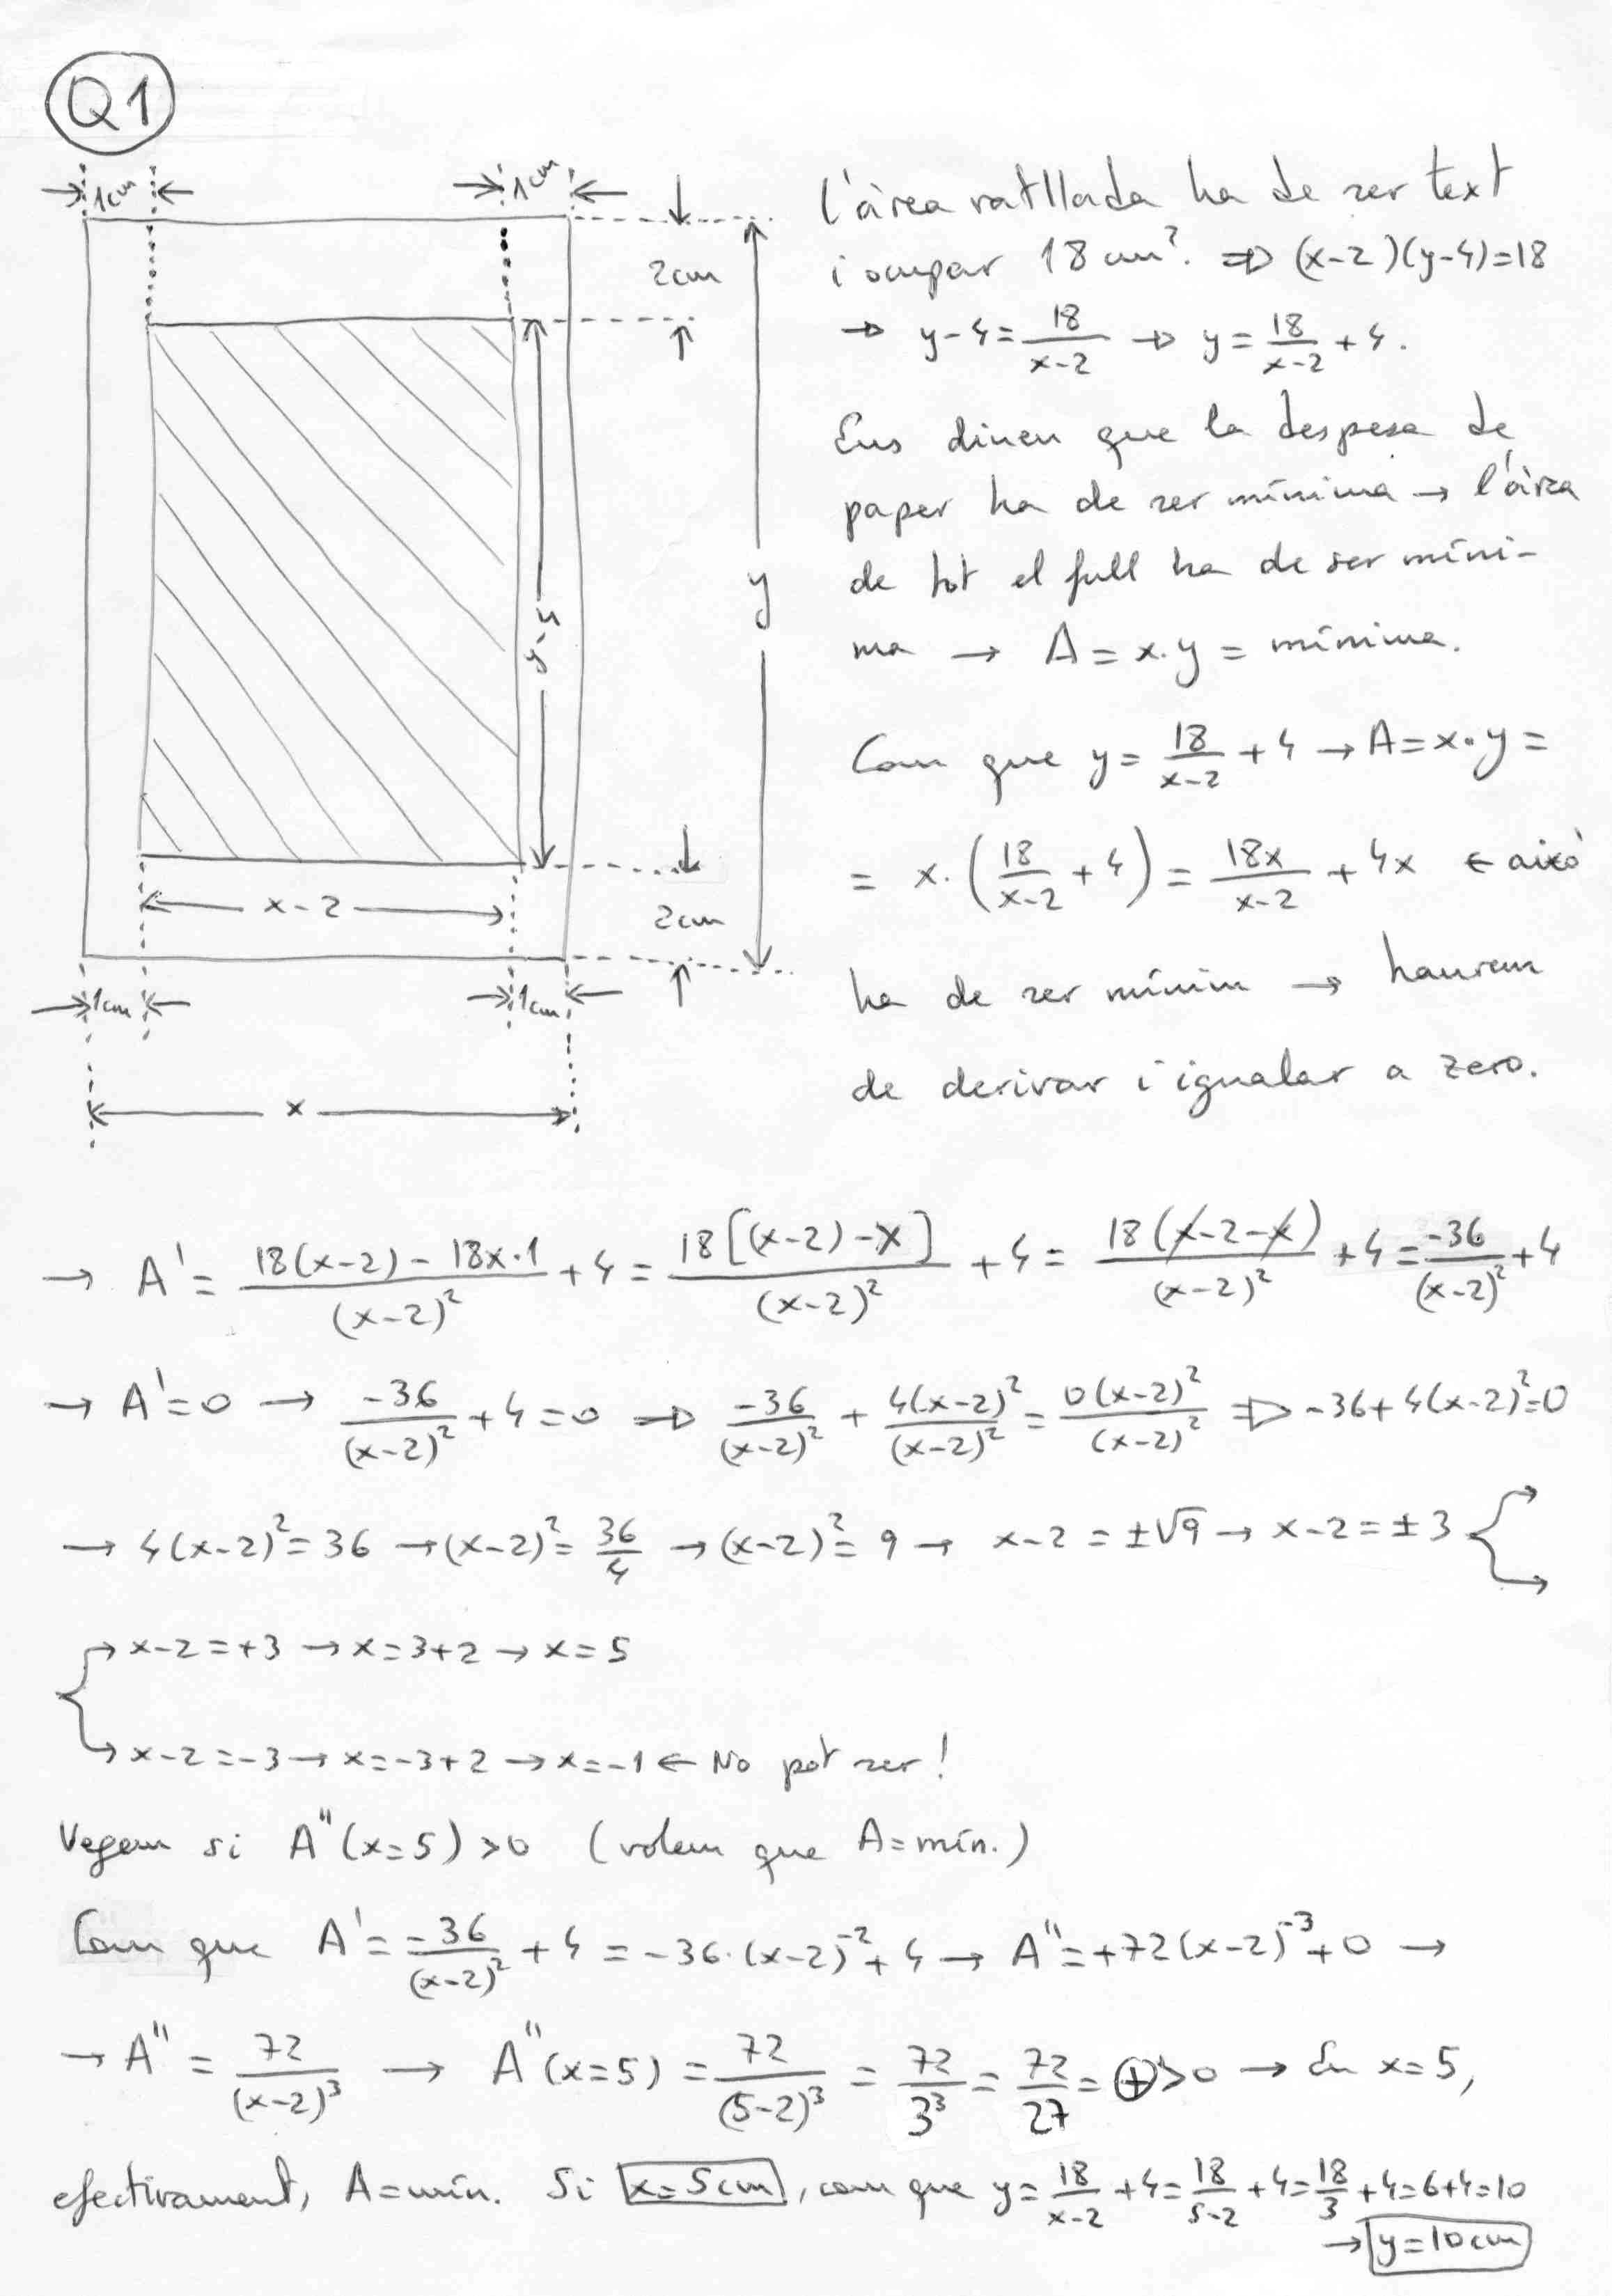 Q1
1cm 1cm
2cm
y-4
y
x-2
2cm
1cm 1cm
x
l'àrea ratllada ha de ser text
i ocupar 18 cm². ⇒ (x-2)(y-4)=18
→ y-4 = 18/(x-2) → y = 18/(x-2) + 4.
Ens diuen que la despesa de
paper ha de ser mínima → l'àrea
de tot el full ha de ser míni-
ma → A = x·y = mínima.
Com que y = 18/(x-2) + 4 → A = x·y =
= x·(18/(x-2) + 4) = 18x/(x-2) + 4x ← això
ha de ser mínim → haurem
de derivar i igualar a zero.
→ A' = (18(x-2) - 18x·1)/(x-2)² + 4 = 18[(x-2)-x]/(x-2)² + 4 = 18(x-2-x)/(x-2)² + 4 = -36/(x-2)² + 4
→ A' = 0 → -36/(x-2)² + 4 = 0 ⇒ -36/(x-2)² + 4(x-2)²/(x-2)² = 0(x-2)²/(x-2)² ⇒ -36 + 4(x-2)² = 0
→ 4(x-2)² = 36 → (x-2)² = 36/4 → (x-2)² = 9 → x-2 = ±√9 → x-2 = ±3
→ x-2 = +3 → x = 3+2 → x = 5
→ x-2 = -3 → x = -3+2 → x = -1 ← No pot ser!
Vegem si A''(x=5) > 0 (volem que A = mín.)
Com que A' = -36/(x-2)² + 4 = -36·(x-2)⁻² + 4 → A'' = +72(x-2)⁻³ + 0 →
→ A'' = 72/(x-2)³ → A''(x=5) = 72/(5-2)³ = 72/3³ = 72/27 = ⊕ > 0 → En x=5,
efectivament, A = mín. Si x = 5cm, com que y = 18/(x-2) + 4 = 18/(5-2) + 4 = 18/3 + 4 = 6+4 = 10
→ y = 10cm